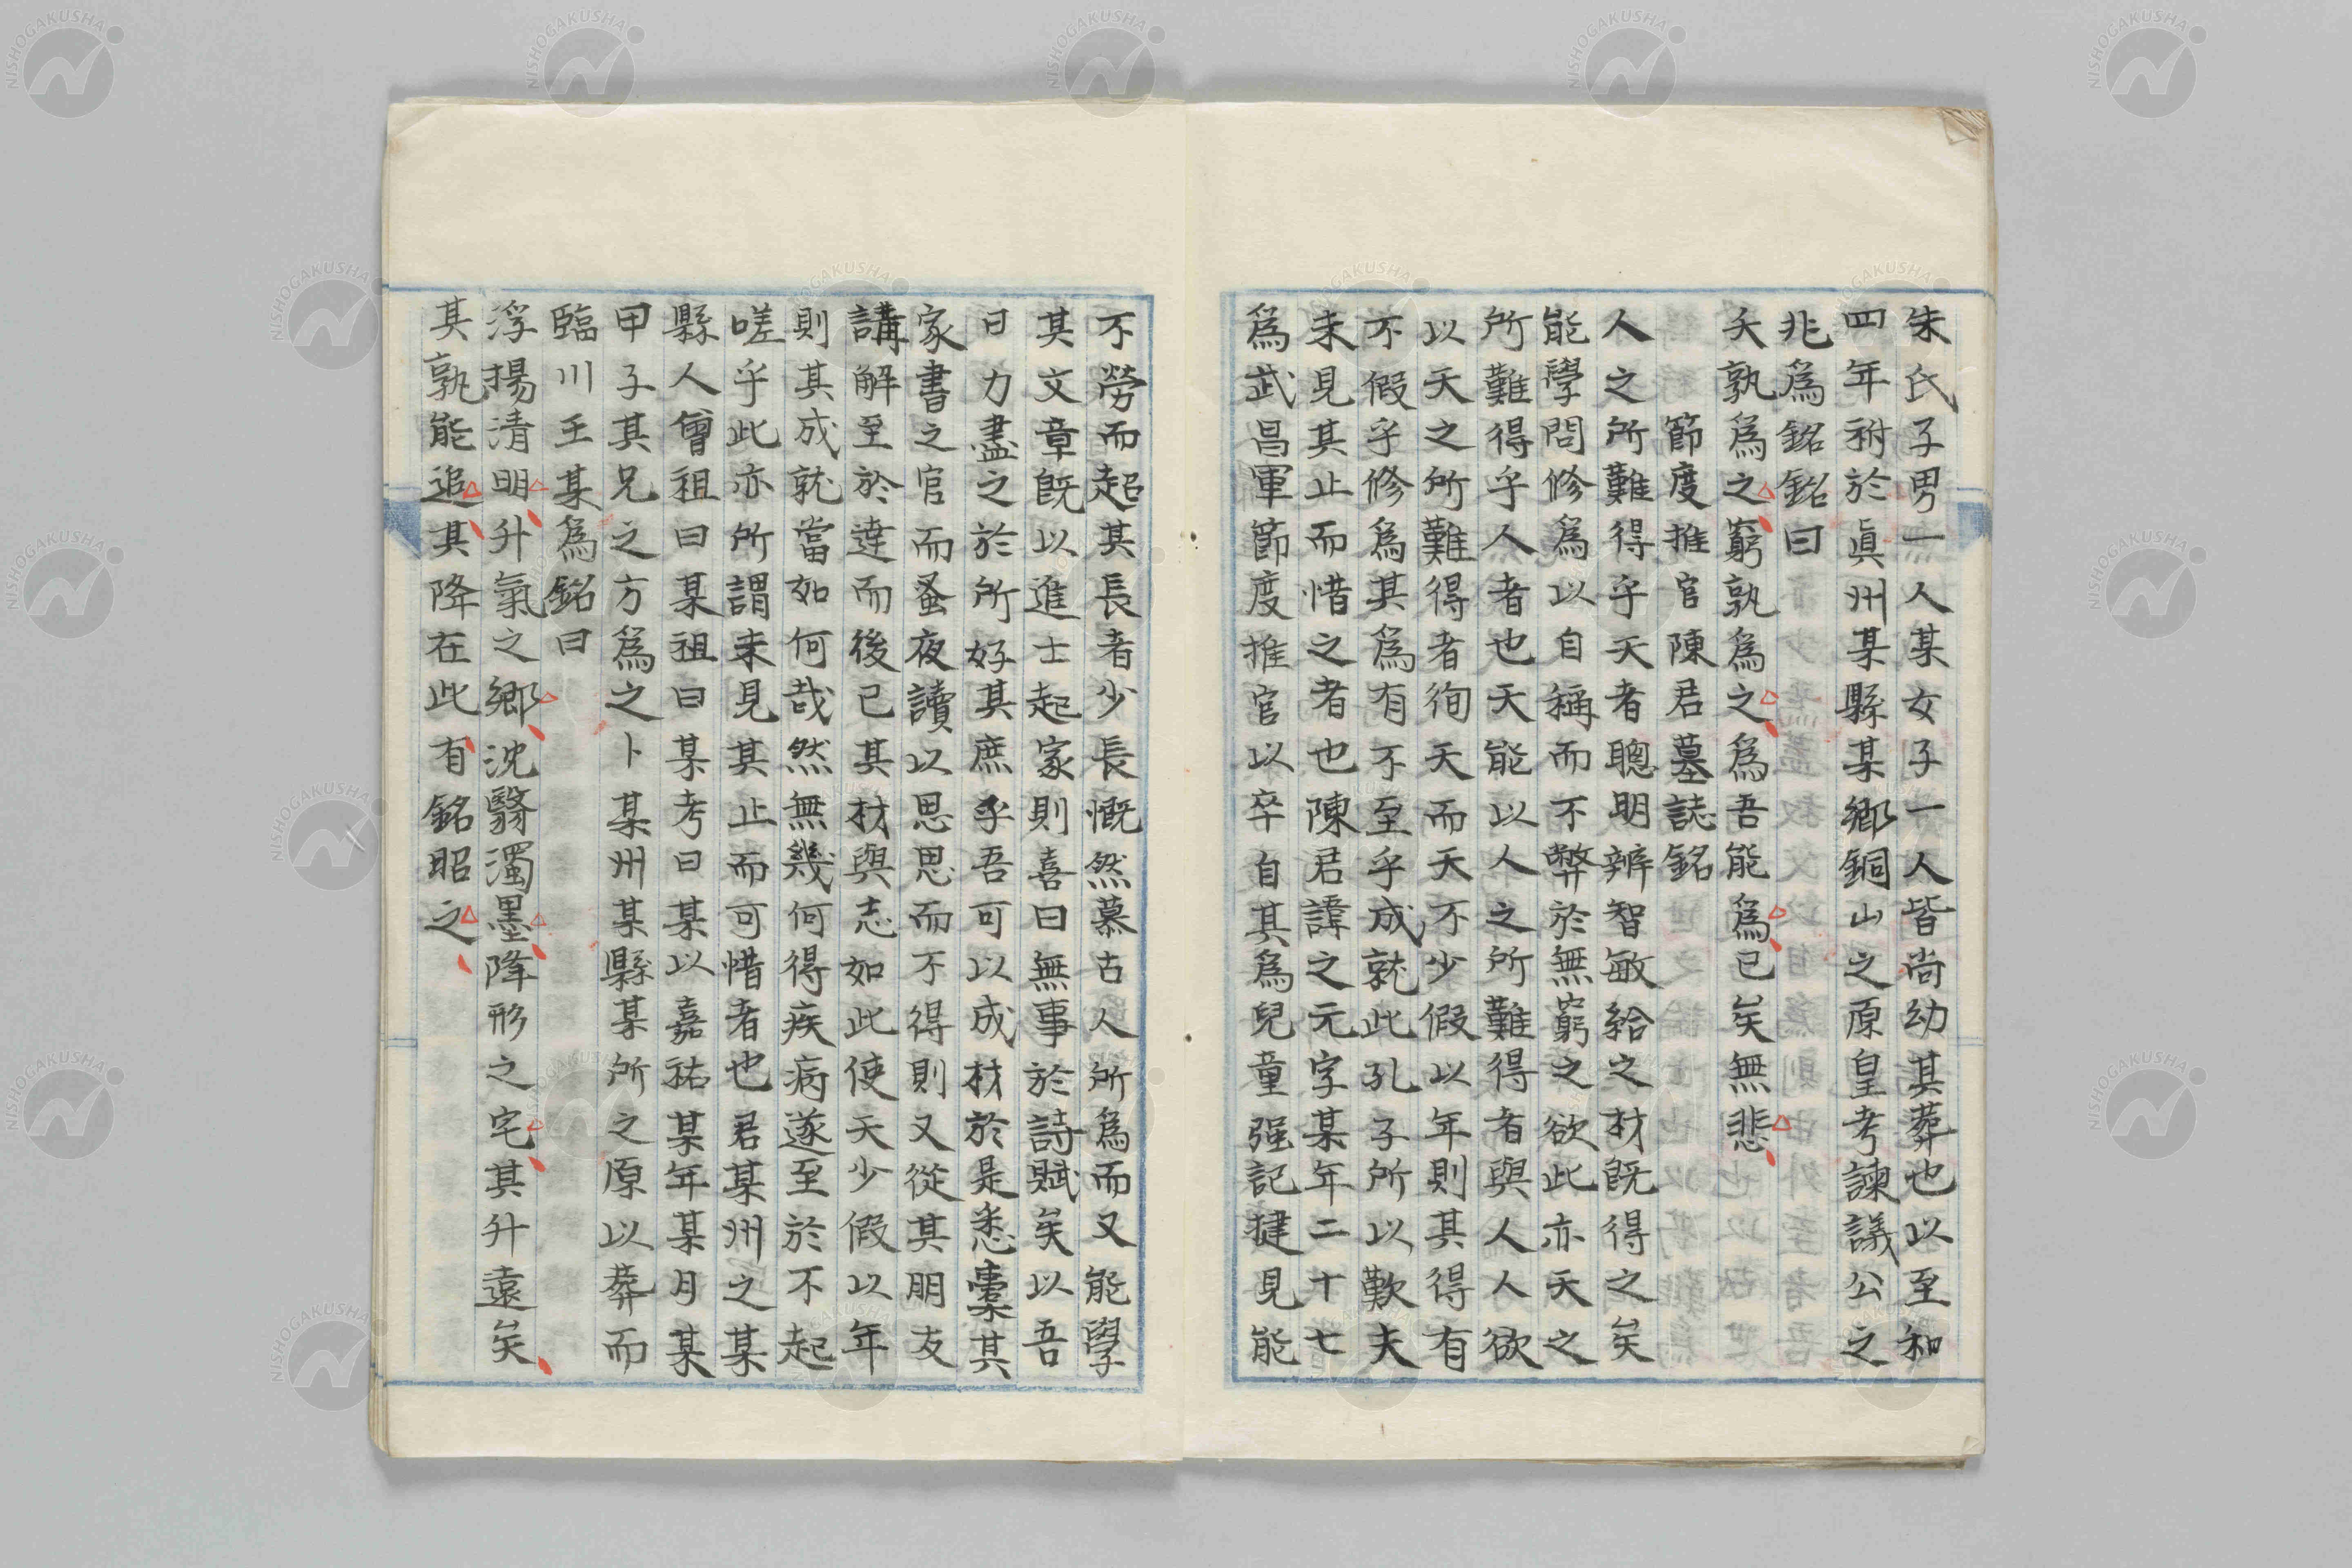 朱氏子男一人某女子一人皆尚幼其葬也以至和
四年祔於眞州某縣某鄉銅山之原皇考諫議公之
兆爲銘銘曰
夭孰爲之窮孰爲之爲吾能爲已矣無悲
節度推官陳君墓誌銘
人之所難得乎天者聰明辨智敏給之材既得之矣
能學問修爲以自稱而不弊於無窮之欲此亦天之
所難得乎人者也天能以人之所難得者與人人欲
以天之所難得者徇天而天不少假以年則其得有
不假乎修爲其爲有不至乎成就此孔子所以歎夫
未見其止而惜之者也陳君諱之元字某年二十七
爲武昌軍節度推官以卒自其爲兒童强記揵見能
不勞而起其長者少長慨然慕古人所爲而又能學
其文章既以進士起家則喜曰無事於詩賦矣以吾
日力盡之於所好其庶乎吾可以成材於是悉橐其
家書之官而蚤夜讀以思思而不得則又從其朋友
講解至於達而後已其材與志如此使天少假以年
則其成就當如何哉然無幾何得疾病遂至於不起
嗟乎此亦所謂未見其止而可惜者也君某州之某
縣人曾祖曰某祖曰某考曰某以嘉祐某年某月某
甲子其兄之方爲之卜某州某縣某所之原以葬而
臨川王某爲銘曰
浮揚清明升氣之鄉沈翳濁墨降形之宅其升遠矣
其孰能追其降在此有銘昭之
NISHOGAKUSHA